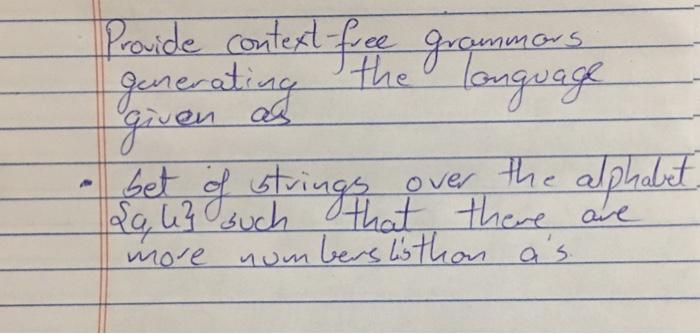 Provide context-free grammars
generating the language
given as
• Set of strings over the alphabet
{a, b} such that there are
more numbers b's than a's.